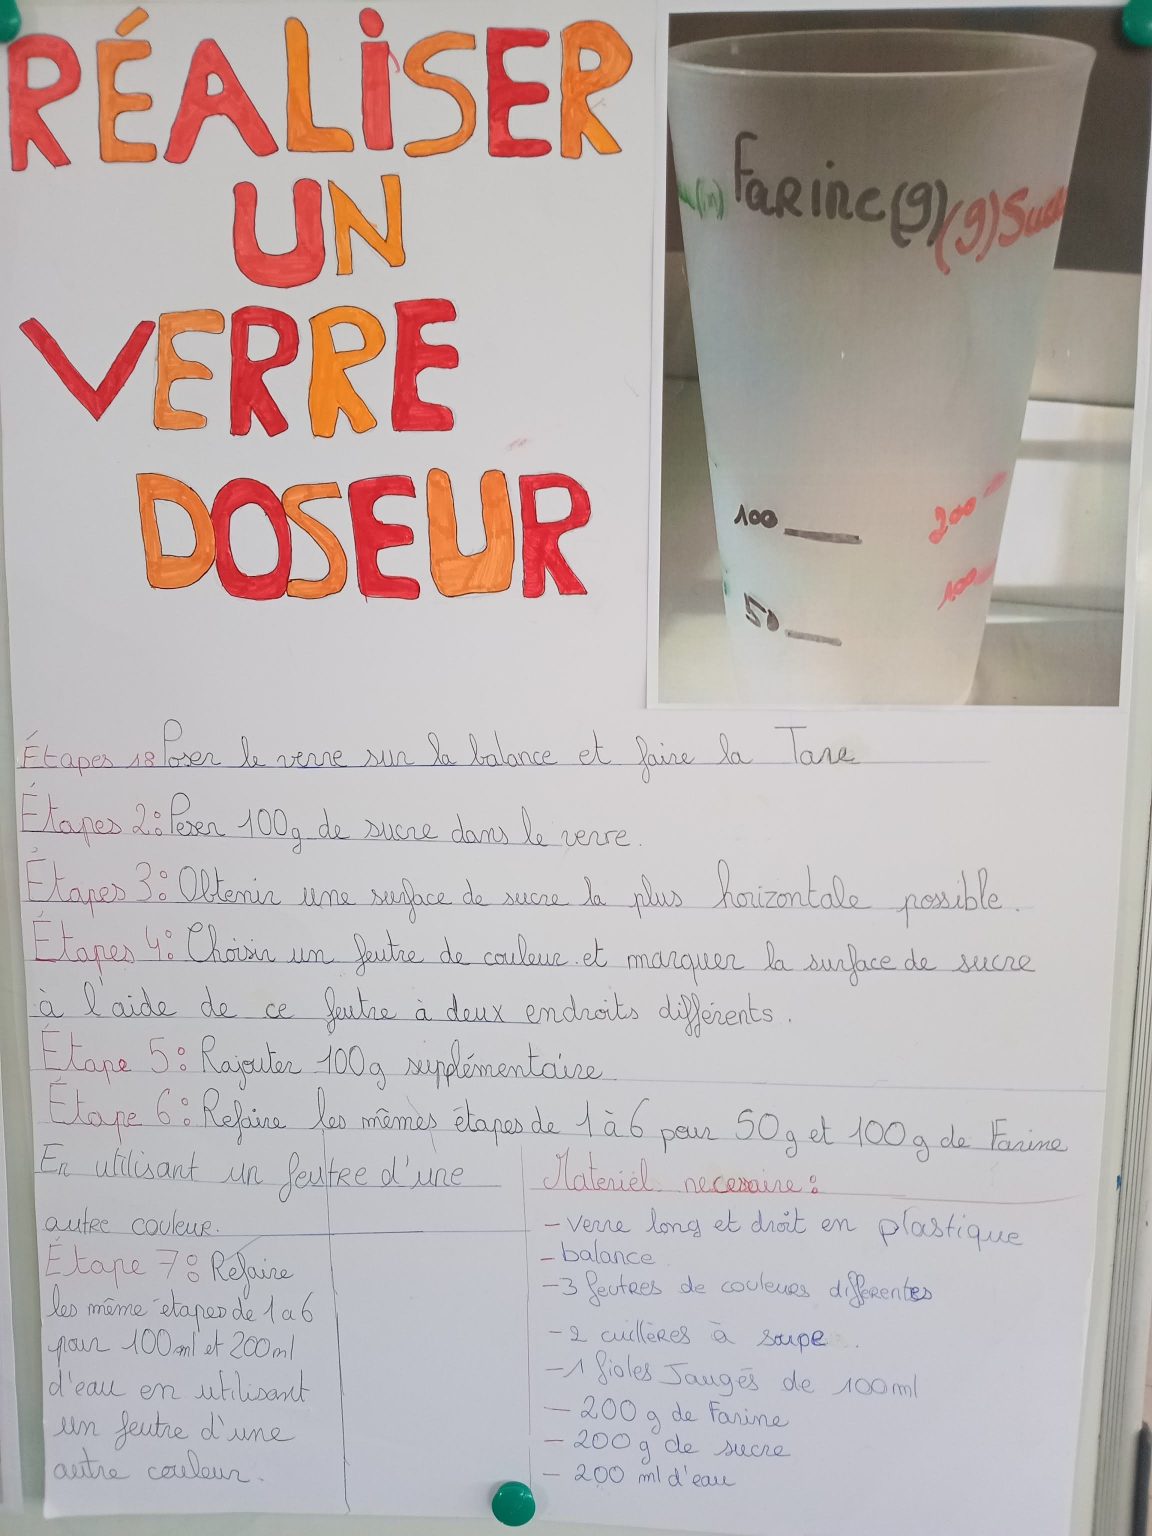 RÉALISER
UN
VERRE
DOSEUR
(in) Farine(g) (g) Suc
100
200
100
50
Étapes 1: Poser le verre sur la balance et faire la Tare
Étapes 2: Peser 100g de sucre dans le verre.
Étapes 3: Obtenir une surface de sucre la plus horizontale possible.
Étapes 4: Choisir un feutre de couleur et marquer la surface de sucre
à l'aide de ce feutre à deux endroits différents.
Étape 5: Rajouter 100g supplémentaire
Étape 6: Refaire les mêmes étapes de 1 à 6 pour 50g et 100g de Farine
En utilisant un feutre d'une
autre couleur.
Étape 7: Refaire
les même étapes de 1 a 6
pour 100ml et 200ml
d'eau en utilisant
un feutre d'une
autre couleur.
Materiel necessaire:
- verre long et droit en plastique
- balance
- 3 feutres de couleurs differentes
- 2 cuillères à soupe
- 1 fioles Jaugés de 100ml
- 200 g de Farine
- 200 g de sucre
- 200 ml d'eau